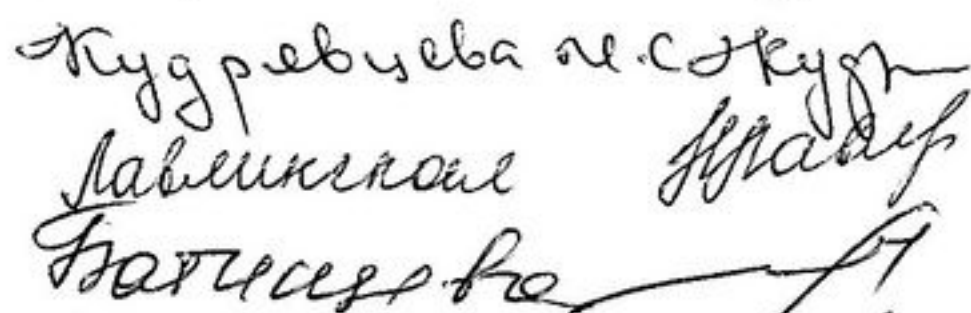 Кудревцева М.С. Кудр
Лавлинская
Батищева